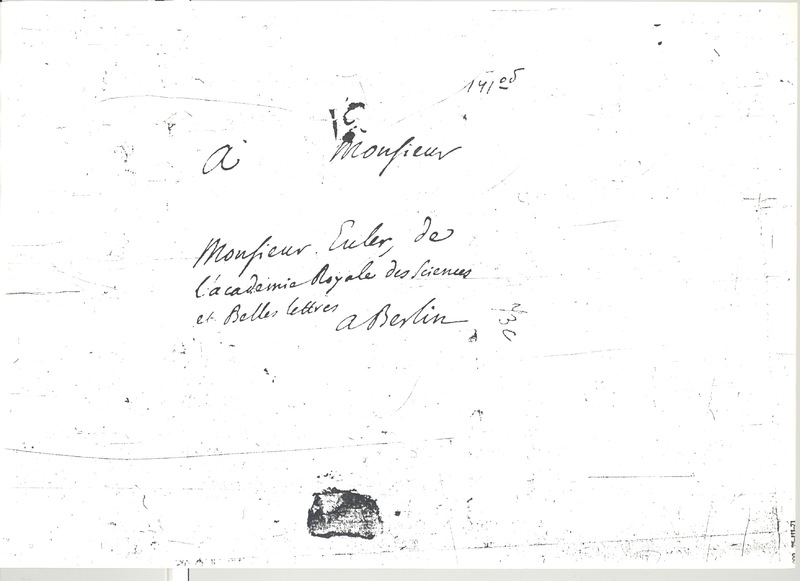 141od
A Monsieur
Monsieur Euler, de
l'académie Royale des Sciences
et Belles lettres
a Berlin